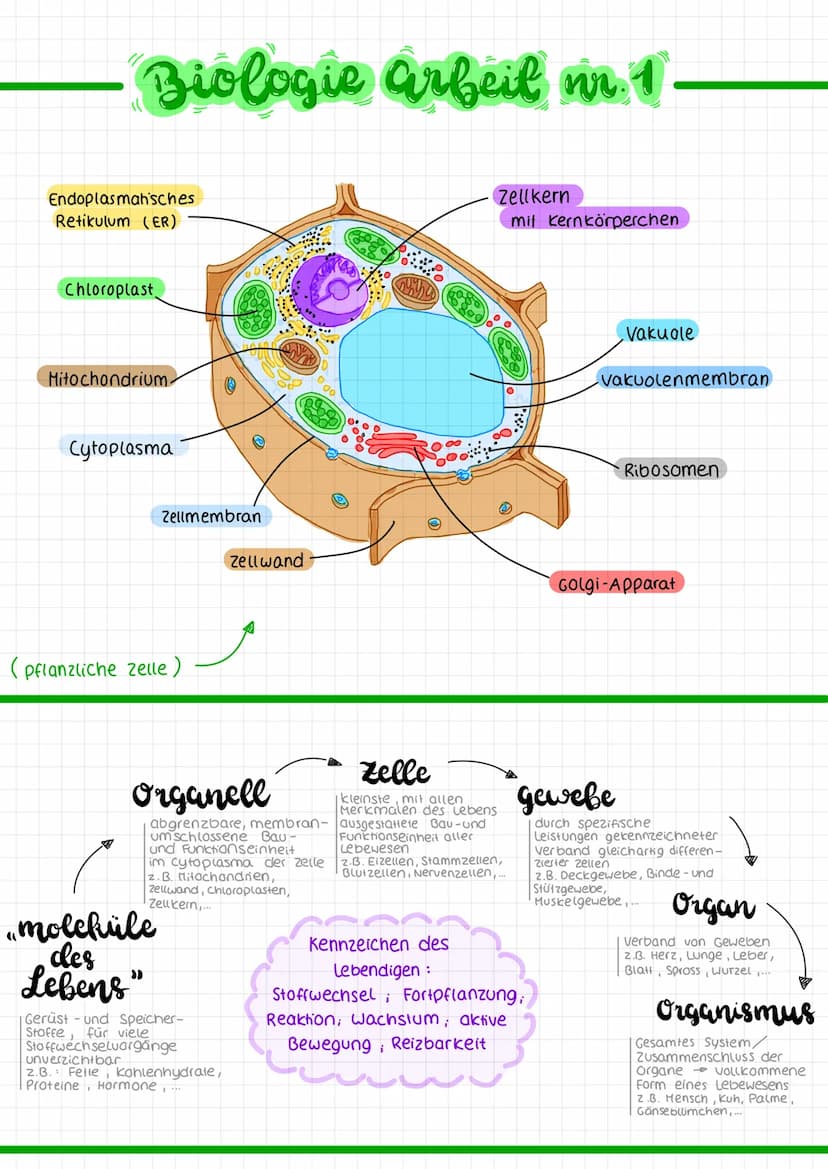 Biologie Arbeit nr. 1
Endoplasmatisches
Retikulum (ER)
Zellkern
mit Kernkörperchen
Chloroplast
Vakuole
Mitochondrium
Vakuolenmembran
Cytoplasma
Ribosomen
Zellmembran
Zellwand
Golgi-Apparat
(pflanzliche Zelle)
"Moleküle
des
Lebens"
Gerüst- und Speicher-
stoffe, für viele
Stoffwechselvorgänge
unverzichtbar
z.B.: Fette, Kohlenhydrate,
Proteine, Hormone, ...
Organell
abgrenzbare, membran-
umschlossene Bau-
und Funktionseinheit
im Cytoplasma der Zelle
z.B. Mitochondrien,
Zellwand, Chloroplasten,
Zellkern,...
Zelle
kleinste, mit allen
Merkmalen des Lebens
ausgestattete Bau- und
Funktionseinheit aller
Lebewesen
z.B. Eizellen, Stammzellen,
Blutzellen, Nervenzellen,...
Gewebe
durch spezifische
Leistungen gekennzeichneter
Verband gleichartig differen-
zierter Zellen
z.B. Deckgewebe, Binde- und
Stützgewebe,
Muskelgewebe,...
Organ
Verband von Geweben
z.B. Herz, Lunge, Leber,
Blatt, Spross, Wurzel,...
Organismus
Gesamtes System/
Zusammenschluss der
Organe → vollkommene
Form eines Lebewesens
z.B. Mensch, Kuh, Palme,
Gänseblümchen,...
Kennzeichen des
Lebendigen:
Stoffwechsel; Fortpflanzung;
Reaktion; Wachstum; aktive
Bewegung; Reizbarkeit